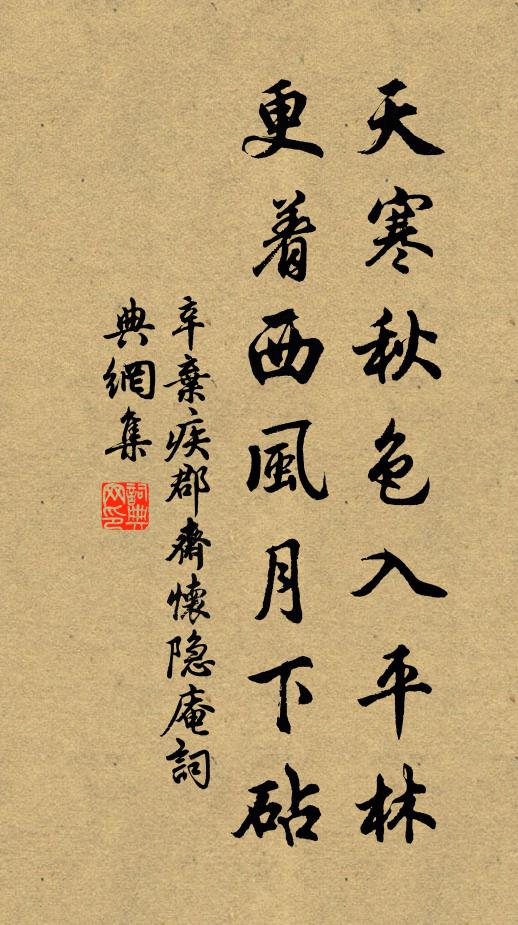 天寒秋色入平林
更着西風月下砧
辛棄疾郡齋懷隐庵詞
典網集
詞典網印